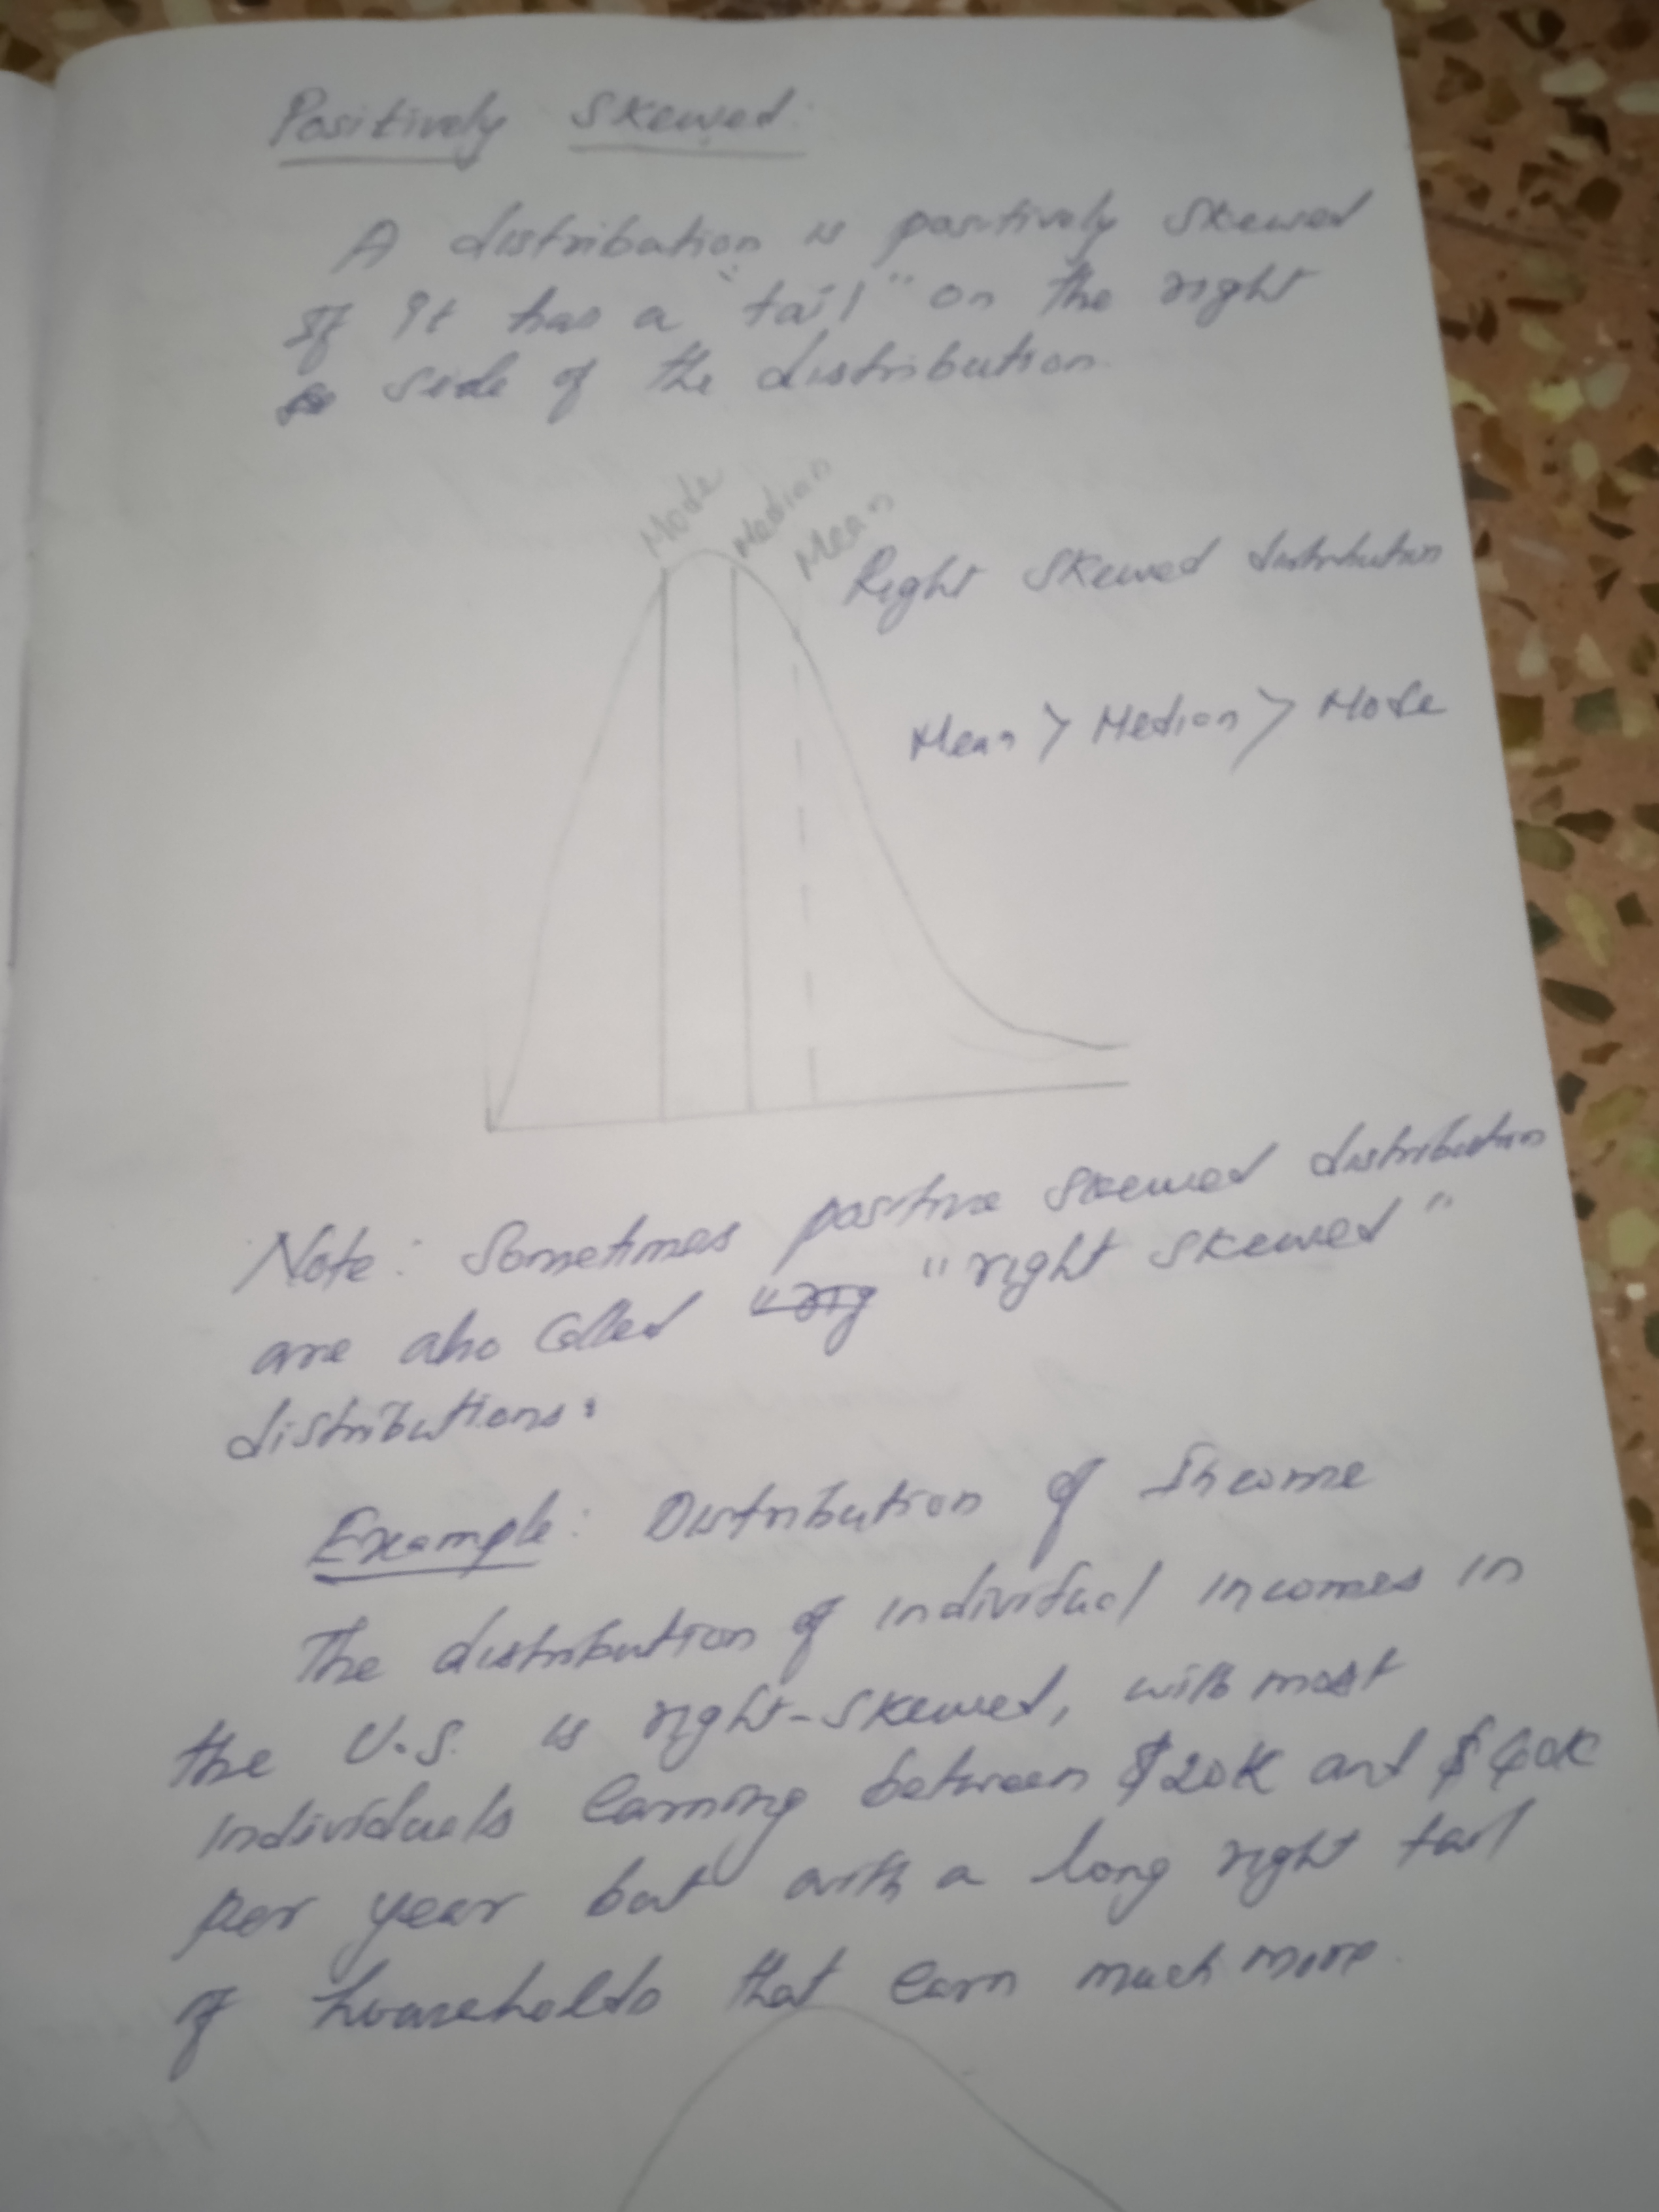 Positively Skewed:
A distribution is positively skewed
If It has a "tail" on the right
side of the distribution.
Mode
Median
Mean
Right Skewed distribution
Mean > Median > Mode
Note: Sometimes positive skewed distribution
are also Called "rig "right skewed"
distributions:
Example: Distribution of Income
The distribution of individual incomes in
the U.S. is right-skewed, with most
individuals earning between $20K and
per year but with a long right tail
of households that earn much more.